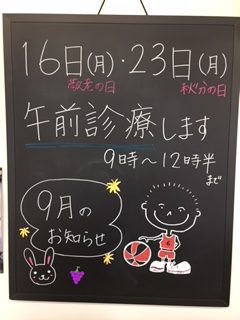 16日(月)・23日(月)
敬老の日 秋分の日
午前診療します
9時~12時半まで
9月の
お知らせ